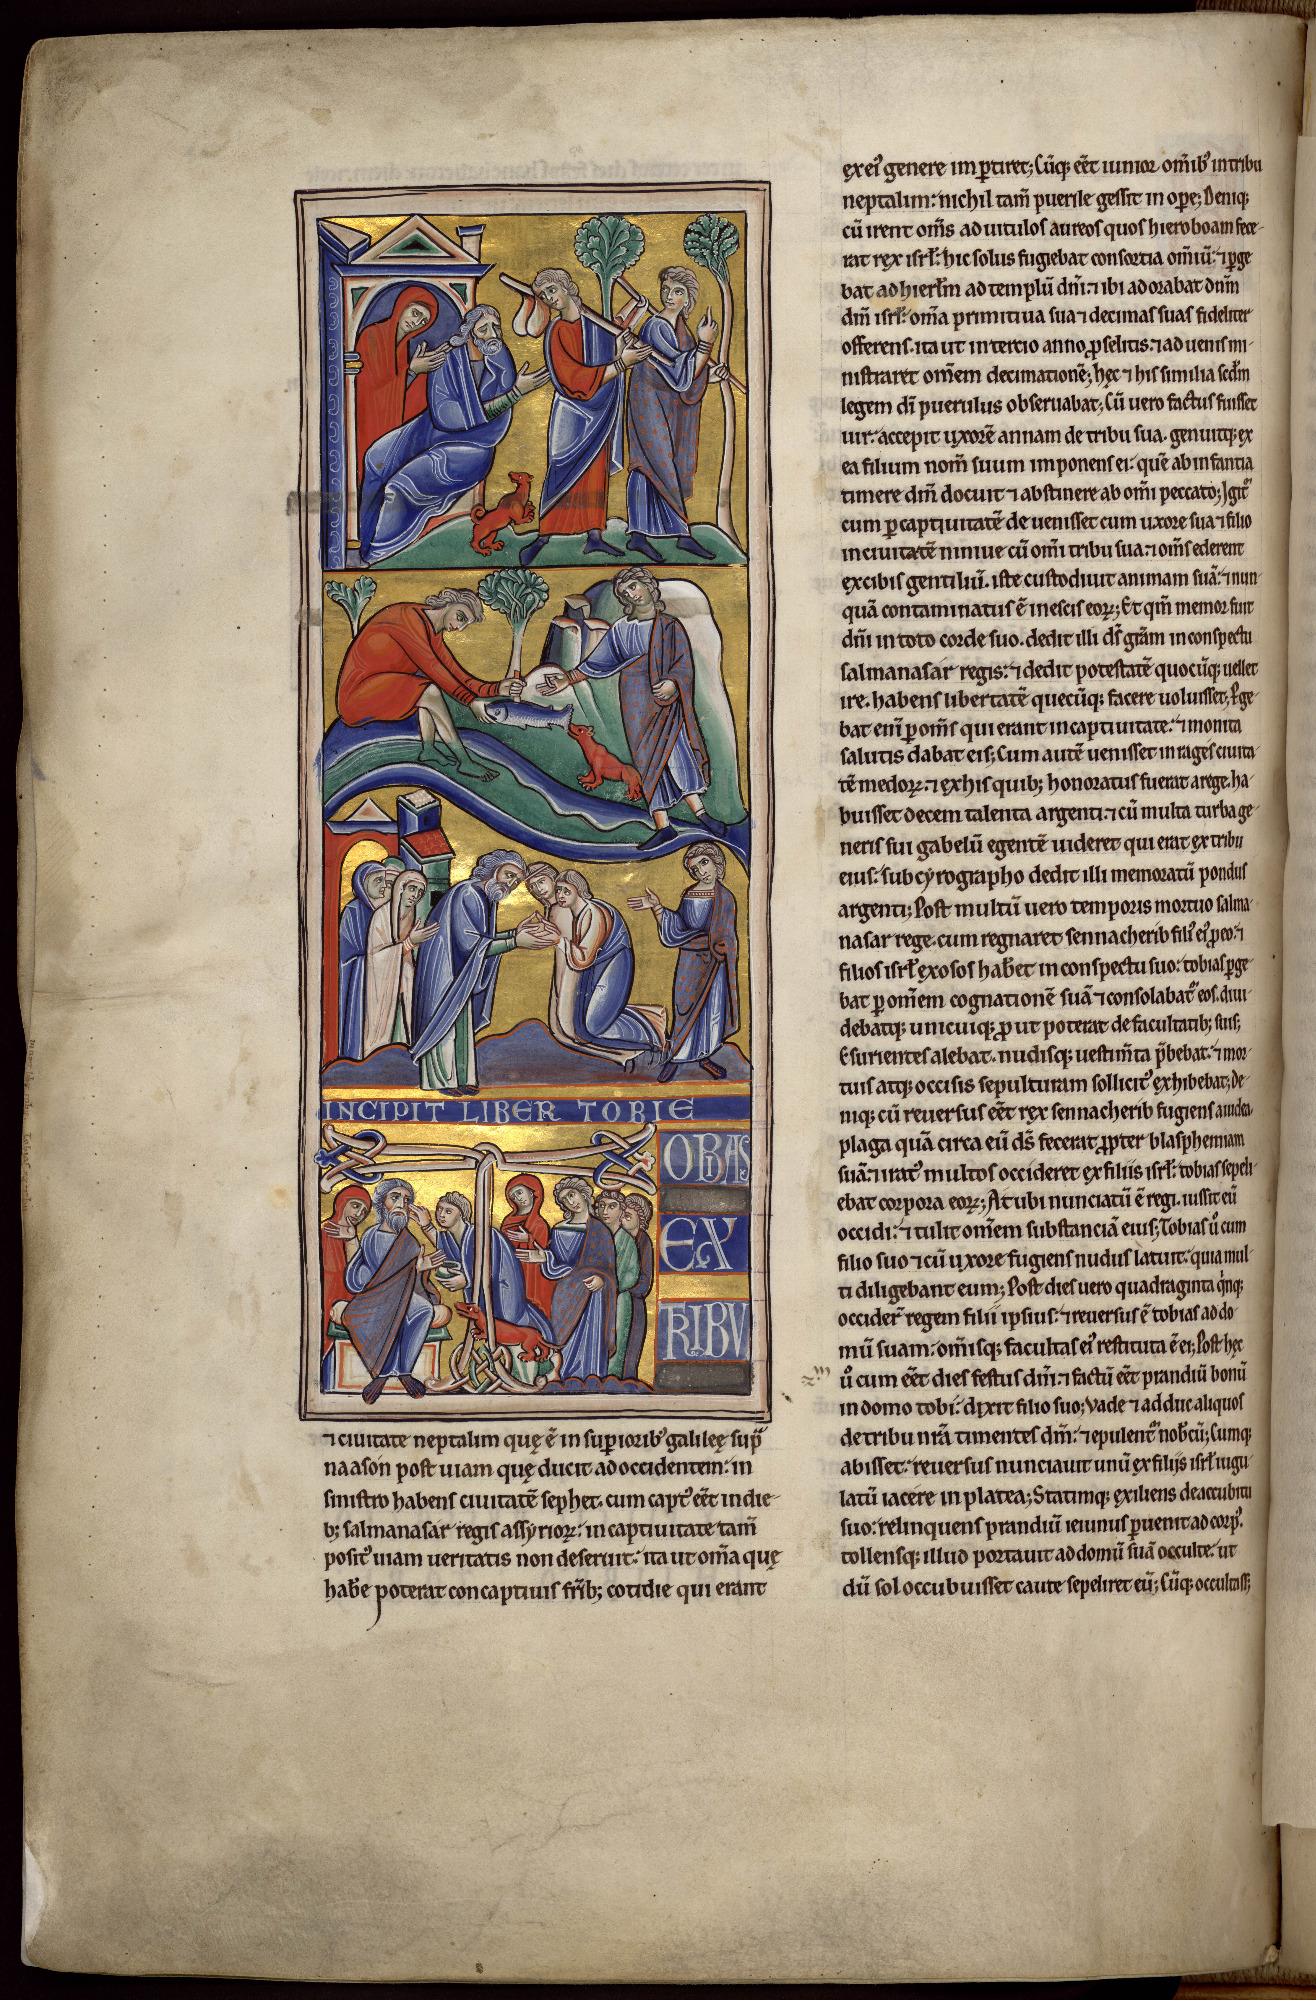 INCIPIT LIBER TOBIE
OBIAS
EX
TRIBV
⁊ ciuitate neptalim quę ē in superiorib; galileę sup̄
naason post uiam quę ducit ad occidentem: in
sinistro habens ciuitatē sephet. cum capt᾽ eēt in die-
b; salmanasar regis assyrioꝝ: in captiuitate tam̄
posit᾽ uiam ueritatis non deseruit: ita ut om̄a quę
hab̄e poterat concaptiuis fr̄ib; cotidie qui erant
ex ei᾽ genere imꝑtiret; Cūq; eēt iunior om̄ib᾽ in tribu
neptalim: nichil tam̄ puerile gessit in oꝑe; Deniq;
cū irent om̄s ad uitulos aureos quos hieroboam fece-
rat rex isrł: hic solus fugiebat consortia omiū: ⁊ ꝑge
bat ad hierłm ad templū dn̄i: ⁊ ibi adorabat dnm̄
dm̄ isrł: om̄a primitiua sua ⁊ decimas suas fideliter
offerens. ita ut in tercio anno ꝓselitis. ⁊ aduenis mi-
nistraret omem decimationē; hęc ⁊ his similia sedm̄
legem dī puerulus obseruabat; Cū vero factus fuisset
uir: accepit uxorē annam de tribu sua. genuitq; ex
ea filium nom̄ suum imponens ei: quē ab infantia
timere dm̄ docuit ⁊ abstinere ab om̄i peccato; Igit᾽
cum ꝑ captiuitatē deuenisset cum uxore sua ⁊ filio
in ciuitatē niniue cū om̄i tribu sua: ⁊ om̄s ederent
ex cibis gentiliū. iste custodiuit animam suā: ⁊ nun-
quā contaminatus ē in escis eoꝝ; Et qm̄ memor fuit
dn̄i in toto corde suo. dedit illi ds̄ grām in conspectu
salmanasar regis: ⁊ dedit potestatē quocūq; uellet
ire. habens libertatē quecūq; facere uoluisset; Ꝑge-
bat eni ꝑ om̄s qui erant in captiuitate: ⁊ monita
salutis dabat eis; Cum autē uenisset in rages ciuita-
tē medoꝝ: ⁊ ex his quib; honoratus fuerat a rege. ha-
buisset decem talenta argenti: ⁊ cū multa turba ge-
neris sui gabelū egentē uideret qui erat ex tribu
eius: sub cyrographo dedit illi memoratū pondus
argenti; Post multū vero temporis mortuo salma-
nasar rege. cum regnaret sennacherib fili᾽ ei᾽ ꝓ eo: ⁊
filios isrł exosos hab̄et in conspectu suo: tobias ꝑge-
bat ꝑ omēm cognationē suā ⁊ consolabat᾽ eos. diui-
debatq; unicuiq; ꝓut poterat de facultatib; suis;
Esurientes alebat. nudisq; uestim̄ta p̄bebat. ⁊ mor-
tuis atq; occisis sepulturam sollicit᾽ exhibebat; De-
niq; cū reuersus eēt rex sennacherib fugiens a iudea
plaga quā circa eū ds̄ fecerat ꝓpter blasphemiam
suā: ⁊ irat᾽ multos occideret ex filiis isrł: tobias sepeli-
ebat corpora eoꝝ; At ubi nunciatū ē regi. iussit eū
occidi: ⁊ tulit omem substanciā eius; Tobias ů cum
filio suo ⁊ cū uxore fugiens nudus latuit: quia mul-
ti diligebant eum; Post dies vero quadraginta qnq;
occider̄ regem filii ipsius: ⁊ reuersus ē tobias ad do
mū suam: omisq; facultas ei᾽ restituta ē ei; Post hęc
ů cum eēt dies festus dn̄i: ⁊ factū eēt prandiū bonū
in domo tobi: dixit filio suo; Vade ⁊ adduc aliquos
de tribu nrā timentes dm̄: ⁊ epulent᾽ nob̄cū; Cumq;
abisset: reuersus nunciauit unū ex filiis isrł iugu-
latū iacere in platea; Statimq; exiliens de accubitu
suo: relinquens prandiū ieiunus ꝑuenit ad corp᾽.
tollensq; illud portauit ad domū suā occulte: ut
dū sol occubuisset caute sepeliret eū; Cūq; occultass;